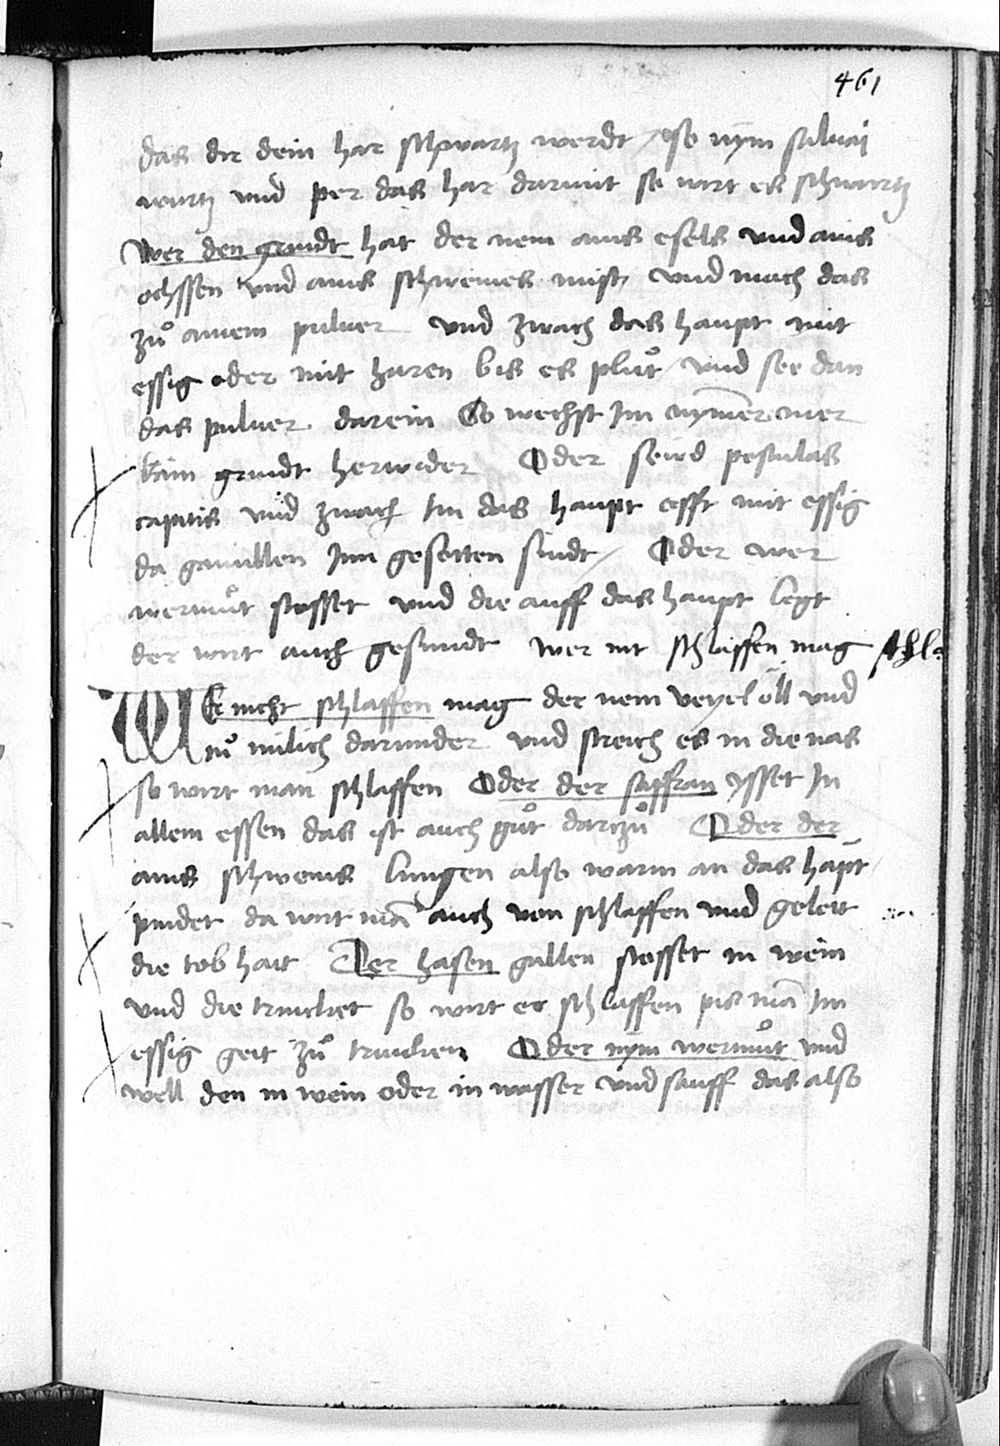 461
das dir dein har schwartz werdt / so nym saluai
wurtz vnd per das har darmit so wirt es schwartz
Wer den grindt hat der nem ains esels vnd ains
ochssen vnd ains schweines mist vnd mach das
zů ainem puluer vnd zwach das haupt mit
essig oder mit haren bis es plůt vnd see dan
das puluer darein So wechst Im nymer mer
kain grindt herwider Oder seud pestulas
capitis vnd zwach Im das haupt offt mit essig
da gamillen Inn gesotten sindt / Oder wer
wermůt stosset vnd die auff das haupt legt
der wirt auch gesundt wer nit schlaffen mag
WEr nicht schlaffen mag der nem veyel öll vnd
tů milich darunder vnd streich es in die nas
so wirt man schlaffen Oder der saffran ysset In
allem essen das ist auch gůt darczů Oder der
ains schweins lungen also warm an das hapt
pindet da wirt mā auch von schlaffen vnd geleit
die tobhait Der hasen gallen stosset in wein
vnd die trincket so wirt er schlaffen pis mā Im
essig geit zů trincken Oder nym wermůt vnd
well den in wein oder in wasser vnd sauff das also